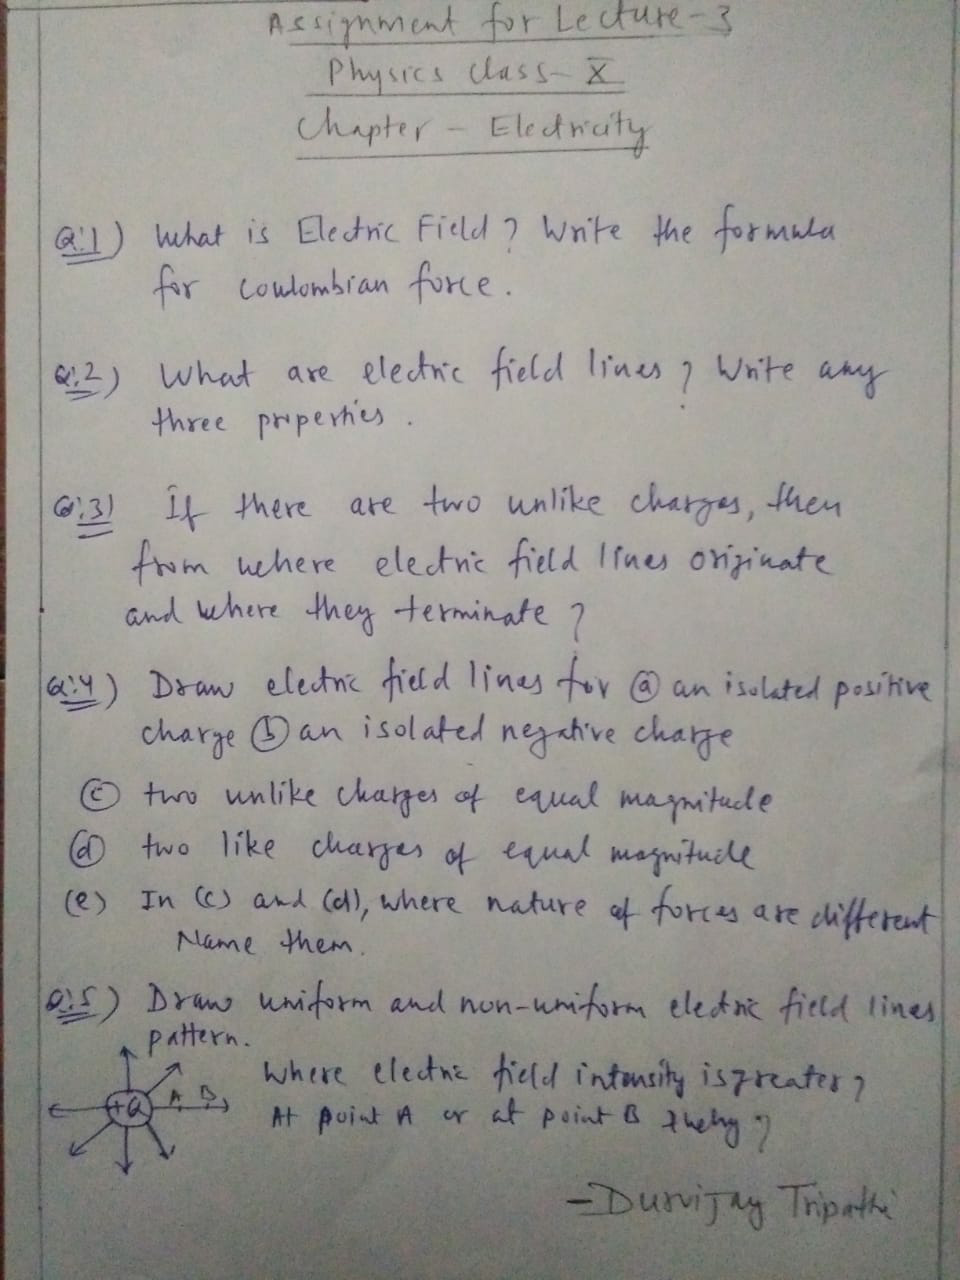 Assignment for Lecture-3
Physics class- X
Chapter - Electricity
Q:1) What is Electric Field? Write the formula
for coulombian force.
Q:2) What are electric field lines? Write any
three properties.
Q:3) If there are two unlike charges, then
from where electric field lines originate
and where they terminate?
Q:4) Draw electric field lines for (a) an isolated positive
charge (b) an isolated negative charge
(c) two unlike charges of equal magnitude
(d) two like charges of equal magnitude
(e) In (c) and (d), where nature of forces are different
Name them.
Q:5) Draw uniform and non-uniform electric field lines
pattern.
Where electric field intensity is greater?
+Q A B
At point A or at point B & why?
- Durvijay Tripathi